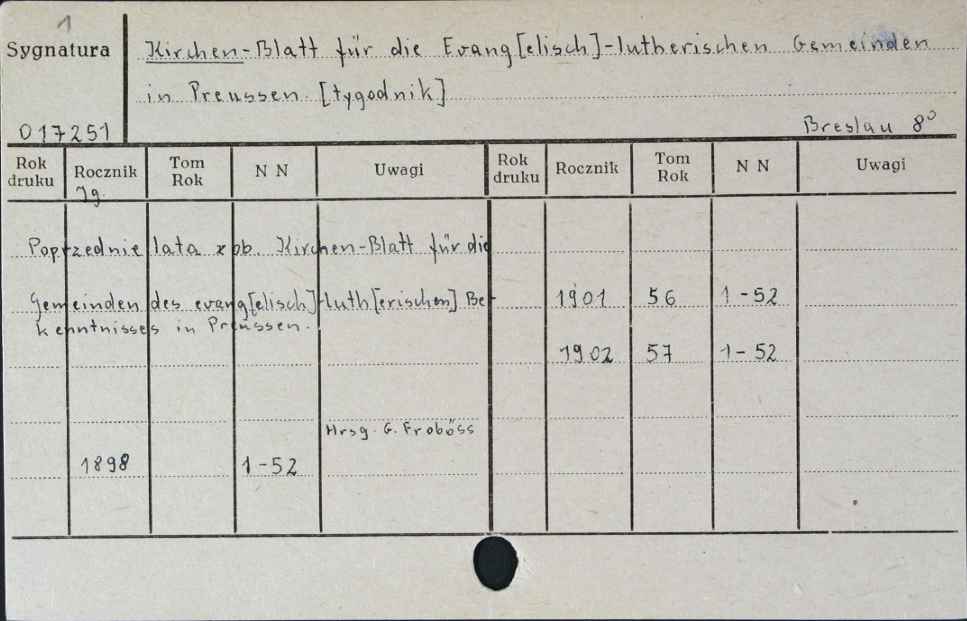 1
Sygnatura
Kirchen-Blatt für die Evang[elisch]-lutherischen Gemeinden
in Preussen. [tygodnik]
017251
Breslau 8°
Rok druku Rocznik Tom Rok N N Uwagi Rok druku Rocznik Tom Rok N N Uwagi
Jg.
Poprzednie lata zob. Kirchen-Blatt für die
Gemeinden des evang[elisch]-luth[erischen] Be-
kenntnisses in Preussen.
1901 56 1-52
1902 57 1-52
Hrsg. G. Froböss
1898 1-52